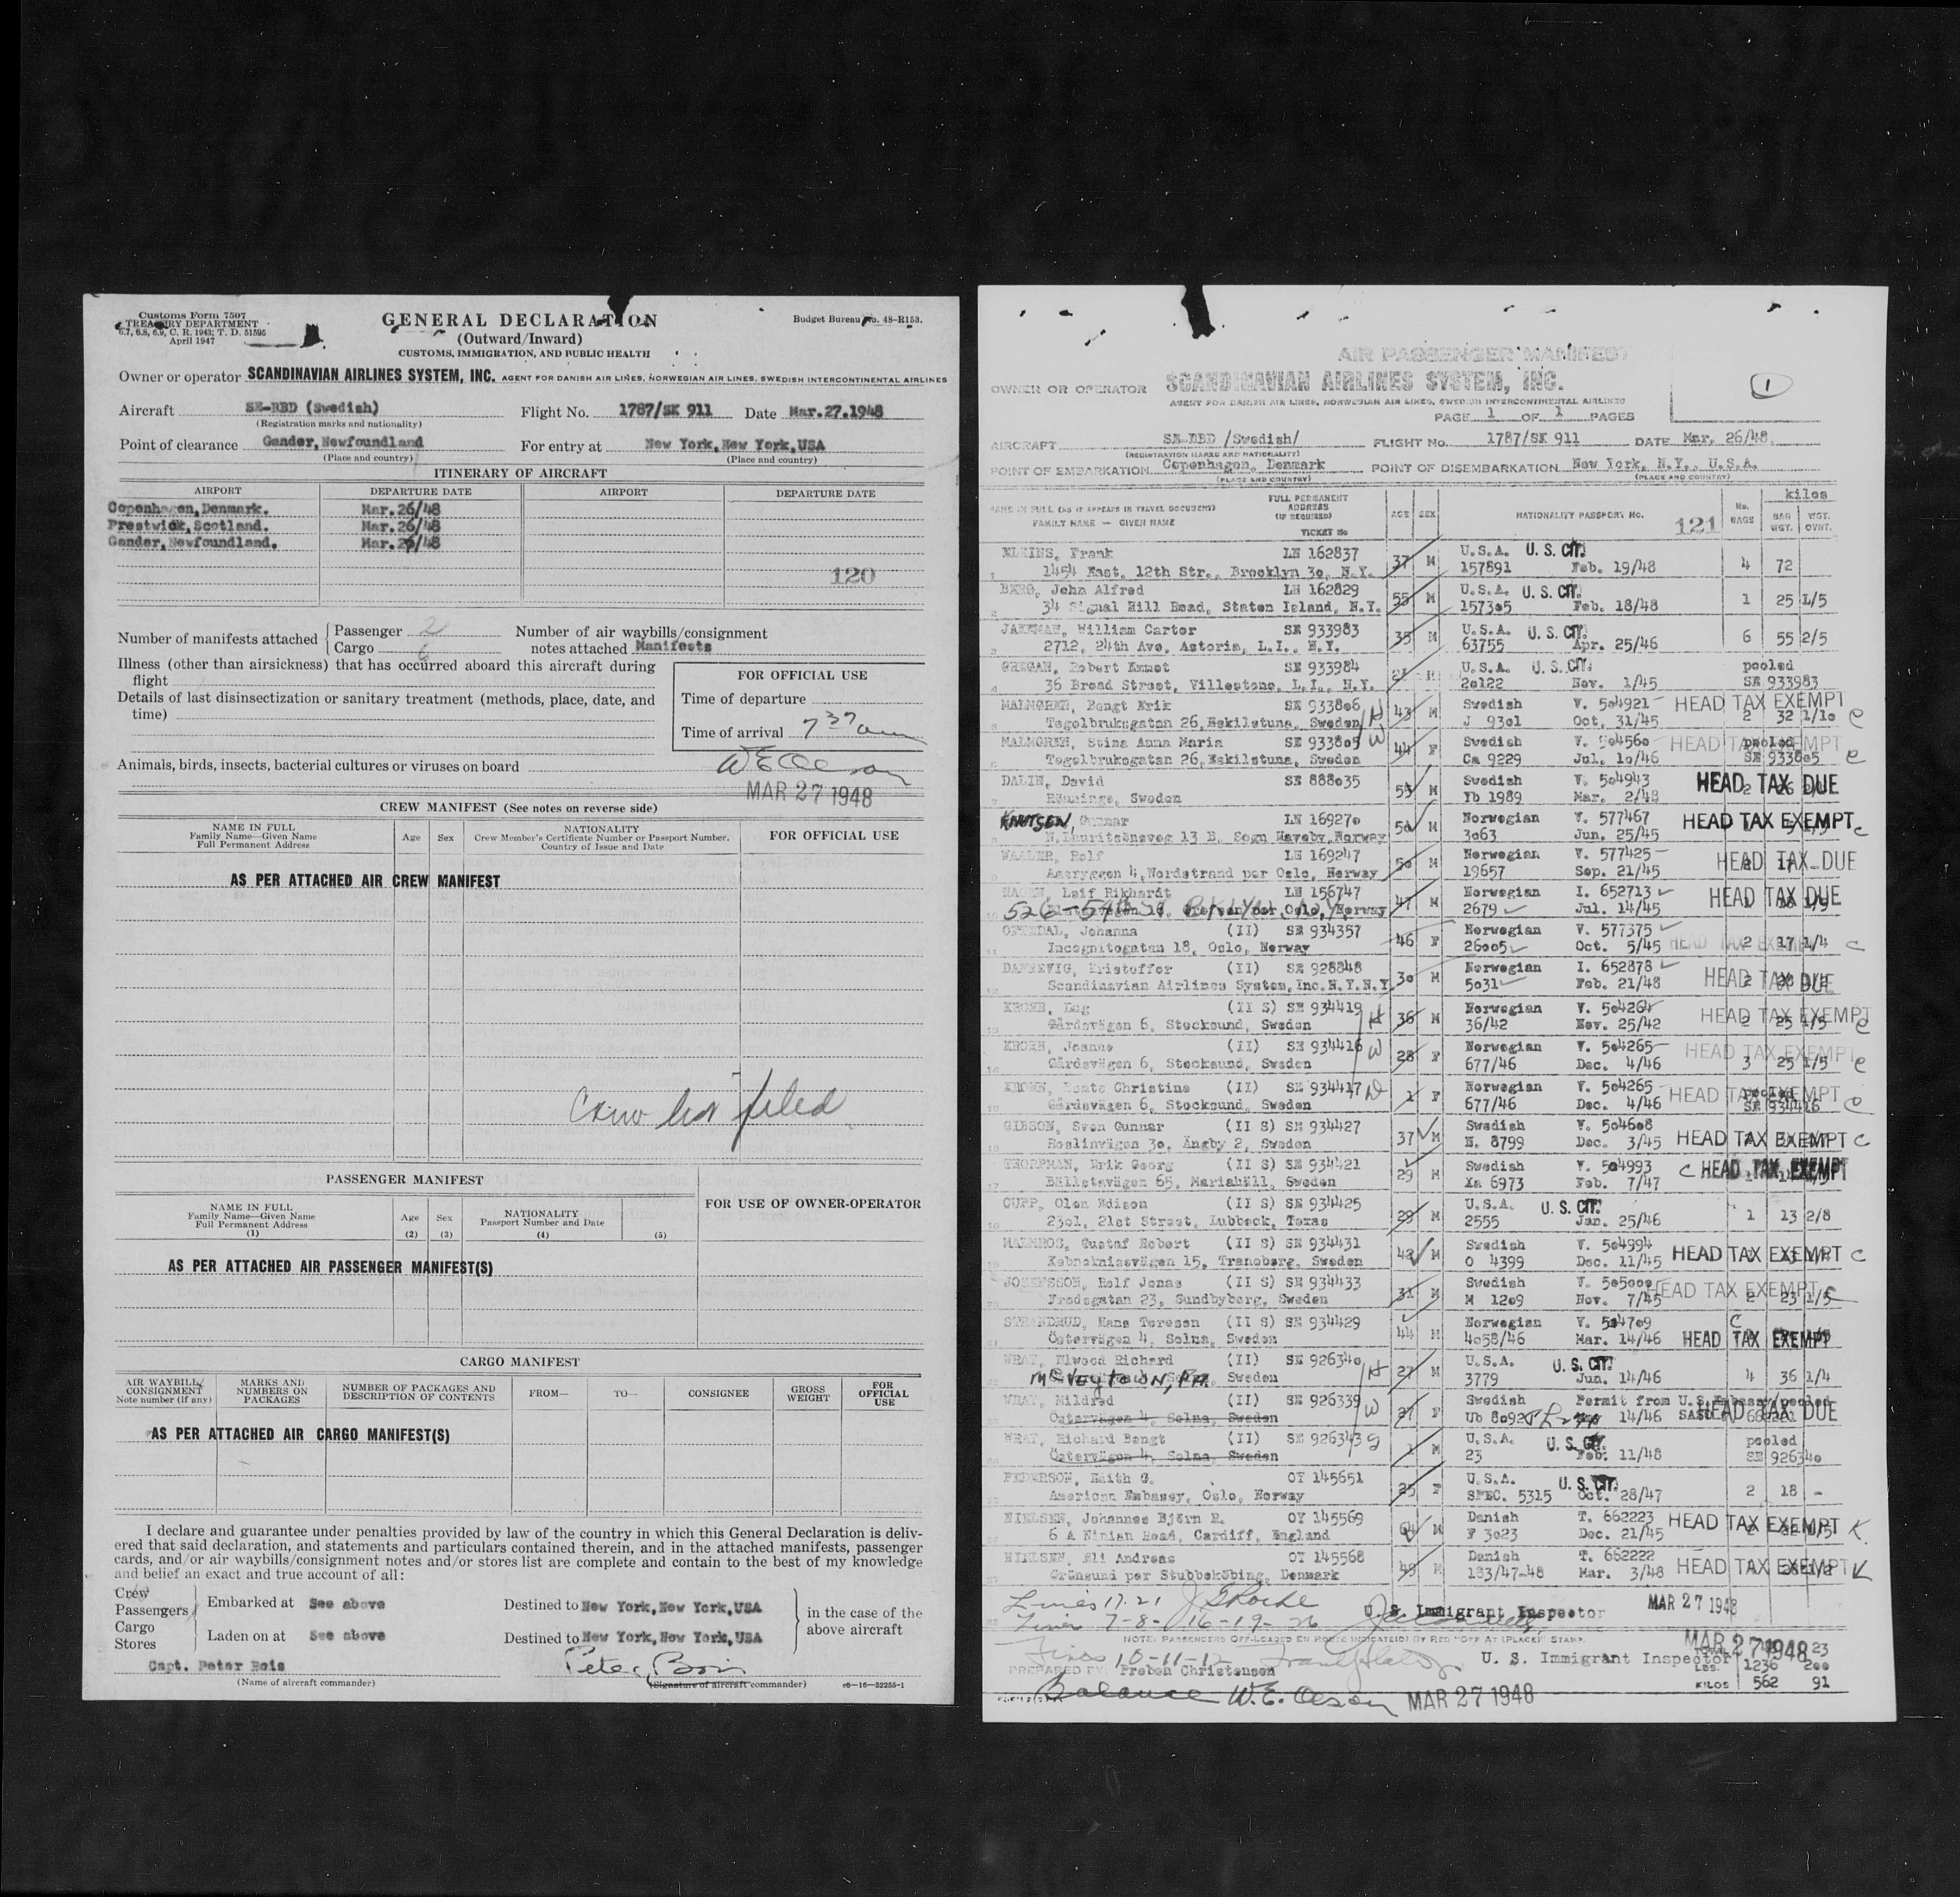 Customs Form 7507
TREASURY DEPARTMENT
6.7, 6.8, 6.9, C. R. 1943; T. D. 51595
April 1947
GENERAL DECLARATION
(Outward/Inward)
CUSTOMS, IMMIGRATION, AND PUBLIC HEALTH
Budget Bureau No. 48-R153.
Owner or operator SCANDINAVIAN AIRLINES SYSTEM, INC. AGENT FOR DANISH AIR LINES, NORWEGIAN AIR LINES, SWEDISH INTERCONTINENTAL AIRLINES
Aircraft SE-BBD (Swedish) Flight No. 1787/SK 911 Date Mar.27.1948
(Registration marks and nationality)
Point of clearance Gander, Newfoundland For entry at New York, New York, USA
(Place and country) (Place and country)
ITINERARY OF AIRCRAFT
AIRPORT DEPARTURE DATE AIRPORT DEPARTURE DATE
Copenhagen, Denmark. Mar.26/48
Prestwick, Scotland. Mar.26/48
Gander, Newfoundland. Mar.2 /48
120
Number of manifests attached { Passenger 2
Cargo 6
Number of air waybills/consignment
notes attached Manifests
Illness (other than airsickness) that has occurred aboard this aircraft during
flight
Details of last disinsectization or sanitary treatment (methods, place, date, and
time)
FOR OFFICIAL USE
Time of departure
Time of arrival 7 37 am
Animals, birds, insects, bacterial cultures or viruses on board
W E Olson
MAR 27 1948
CREW MANIFEST (See notes on reverse side)
NAME IN FULL
Family Name—Given Name
Full Permanent Address
Age Sex
NATIONALITY
Crew Member's Certificate Number or Passport Number.
Country of Issue and Date
FOR OFFICIAL USE
AS PER ATTACHED AIR CREW MANIFEST
Crew list filed
PASSENGER MANIFEST
FOR USE OF OWNER-OPERATOR
NAME IN FULL
Family Name—Given Name
Full Permanent Address
(1)
Age
(2)
Sex
(3)
NATIONALITY
Passport Number and Date
(4) (5)
AS PER ATTACHED AIR PASSENGER MANIFEST(S)
CARGO MANIFEST
AIR WAYBILL/
CONSIGNMENT
Note number (if any)
MARKS AND
NUMBERS ON
PACKAGES
NUMBER OF PACKAGES AND
DESCRIPTION OF CONTENTS
FROM— TO— CONSIGNEE
GROSS
WEIGHT
FOR
OFFICIAL
USE
AS PER ATTACHED AIR CARGO MANIFEST(S)
I declare and guarantee under penalties provided by law of the country in which this General Declaration is deliv-
ered that said declaration, and statements and particulars contained therein, and in the attached manifests, passenger
cards, and/or air waybills/consignment notes and/or stores list are complete and contain to the best of my knowledge
and belief an exact and true account of all:
Crew
Passengers
Cargo
Stores
Embarked at See above Destined to New York, New York, USA
Laden on at See above Destined to New York, New York, USA
in the case of the
above aircraft
Capt. Peter Bois
(Name of aircraft commander)
(Signature of aircraft commander)
c6—16—52255-1
AIR PASSENGER MANIFEST
OWNER OR OPERATOR SCANDINAVIAN AIRLINES SYSTEM, INC.
AGENT FOR DANISH AIR LINES, NORWEGIAN AIR LINES, SWEDISH INTERCONTINENTAL AIRLINES
1
PAGE 1 OF 1 PAGES
AIRCRAFT SE-BBD /Swedish/ FLIGHT No. 1787/SK 911 DATE Mar. 26/48
(REGISTRATION MARKS AND NATIONALITY)
POINT OF EMBARKATION Copenhagen, Denmark POINT OF DISEMBARKATION New York, N.Y., U.S.A.
(PLACE AND COUNTRY) (PLACE AND COUNTRY)
NAME IN FULL (AS IT APPEARS IN TRAVEL DOCUMENT)
FAMILY NAME — GIVEN NAME
FULL PERMANENT
ADDRESS
(IF REQUIRED)
TICKET No
AGE SEX NATIONALITY PASSPORT No. 121
No. BAGS
kilos
BAG WGT. WGT. OVNT.
ELKINS, Frank LN 162837 37 M U.S.A. U. S. CIT.
1454 East, 12th Str., Brooklyn 30, N.Y. 157891 Feb. 19/48 4 72
BERG, John Alfred LN 162829 55 M U.S.A. U. S. CIT.
34 Signal Hill Road, Staten Island, N.Y. 157305 Feb. 18/48 1 25 1/5
JAKEMAN, William Carter SE 933983 35 M U.S.A. U. S. CIT.
2712, 24th Ave, Astoria, L.I., N.Y. 63755 Apr. 25/46 6 55 2/5
GREGAN, Robert Emmet SE 933984 M U.S.A. U. S. CIT. pooled
36 Broad Street, Villestone, L.I., N.Y. 20122 Nov. 1/45 SE 933983
MALMGREN, Bengt Erik SE 933806 H 43 M Swedish V. 504921 HEAD TAX EXEMPT
Tegelbruksgatan 26, Eskilstuna, Sweden J 9301 Oct. 31/45 2 32 1/10 C
MALMGREN, Stina Anna Maria SE 933805 W 44 F Swedish V. 504560 HEAD TAX EXEMPT pooled
Tegelbruksgatan 26, Eskilstuna, Sweden Ca 9229 Jul. 10/46 SE 933805 C
DALIN, David SE 888035 55 M Swedish V. 504943 HEAD TAX DUE
Rönninge, Sweden Yb 1989 Mar. 2/48
KNUTSEN, Gunnar LN 169270 50 M Norwegian V. 577467 HEAD TAX EXEMPT C
N. Lauritzönsveg 13 B, Sogn Haveby, Norway 3063 Jun. 25/45
WAALER, Rolf LN 169247 50 M Norwegian V. 577425 HEAD TAX DUE
Aasryggen 4, Nordstrand per Oslo, Norway 19657 Sep. 21/45
HAGEN, Leif Rikhardt LN 156747 47 M Norwegian I. 652713 HEAD TAX DUE
526-54th St BKLYN, N.Y. per Oslo, Norway 2679 Jul. 14/45
OFTEDAL, Johanna (II) SE 934357 46 F Norwegian V. 577375 HEAD TAX EXEMPT
Incognitogatan 18, Oslo, Norway 26005 Oct. 5/45 2 17 1/4 C
DANNEVIG, Kristoffer (II) SE 928848 30 M Norwegian I. 652878 HEAD TAX DUE
Scandinavian Airlines System, Inc. N.Y. N.Y. 5031 Feb. 21/48
KROHN, Dag (II S) SE 934419 H 36 M Norwegian V. 504264 HEAD TAX EXEMPT
Gårdsvägen 6, Stocksund, Sweden 36/42 Nov. 25/42 2 25 1/5 C
KROHN, Joanne (II) SE 934416 W 28 F Norwegian V. 504265 HEAD TAX EXEMPT
Gårdsvägen 6, Stocksund, Sweden 677/46 Dec. 4/46 3 25 1/5 C
KROHN, Bente Christine (II) SE 934417 D 1 F Norwegian V. 504265 HEAD TAX EXEMPT pooled
Gårdsvägen 6, Stocksund, Sweden 677/46 Dec. 4/46 SE 934416 C
GIBSON, Sven Gunnar (II S) SE 934427 37 M Swedish V. 504608
Roslinvägen 30, Ängby 2, Sweden N. 8799 Dec. 3/45 HEAD TAX EXEMPT C
THORPMAN, Erik Georg (II S) SE 934421 29 M Swedish V. 504993 C HEAD TAX EXEMPT
Bällstavägen 65, Mariehäll, Sweden Xa 6973 Feb. 7/47
CUPP, Olen Edison (II S) SE 934425 29 M U.S.A. U. S. CIT.
2301, 21st Street, Lubbock, Texas 2555 Jan. 25/46 1 13 2/8
MALMROS, Gustaf Robert (II S) SE 934431 42 M Swedish V. 504994 HEAD TAX EXEMPT C
Kebnekaisevägen 15, Traneberg, Sweden O 4399 Dec. 11/45
JOSEFSSON, Rolf Jonas (II S) SE 934433 31 M Swedish V. 505000 HEAD TAX EXEMPT
Fredsgatan 23, Sundbyberg, Sweden M 1209 Nov. 7/45 2 23 1/5 C
STRANDRUD, Hans Toresen (II S) SE 934429 44 M Norwegian V. 504709 C
Östervägen 4, Solna, Sweden 4058/46 Mar. 14/46 HEAD TAX EXEMPT
WRAY, Elwood Richard (II) SE 926340 H 27 M U.S.A. U. S. CIT.
McVeytown, PA. Sweden 3779 Jun. 14/46 4 36 1/4
WRAY, Mildred (II) SE 926339 W 27 F Swedish Permit from U.S. Embassy pooled
Östervägen 4, Solna, Sweden Ub 8092 14/46 HEAD TAX DUE
WRAY, Richard Bengt (II) SE 926343 S 1 M U.S.A. U. S. CIT. pooled
Östervägen 4, Solna, Sweden 23 Feb. 11/48 SE 926340
PEDERSON, Edith G. OY 145651 25 F U.S.A. U. S. CIT.
American Embassy, Oslo, Norway SPEC. 5315 Oct. 28/47 2 18 -
NIELSEN, Johannes Björn R. OY 145569 64 M Danish T. 662223 HEAD TAX EXEMPT K
6 A Ninian Road, Cardiff, England F 3023 Dec. 21/45
NIELSEN, Eli Andreas OY 145568 49 M Danish T. 662222 HEAD TAX EXEMPT K
Grönsund per Stubbeköbing, Denmark 183/47-48 Mar. 3/48
Lines 17-21
U. S. Immigrant Inspector MAR 27 1948
Lines 7-8- 16-19-26
NOTE: PASSENGERS OFF-LOADED EN ROUTE INDICATED BY RED "OFF AT (PLACE)" STAMP.
Lines 10-11-12
U. S. Immigrant Inspector MAR 27 1948 23
PREPARED BY: Preben Christensen LBS. 1236 200
Balance W. E. Olson MAR 27 1948 KILOS 562 91